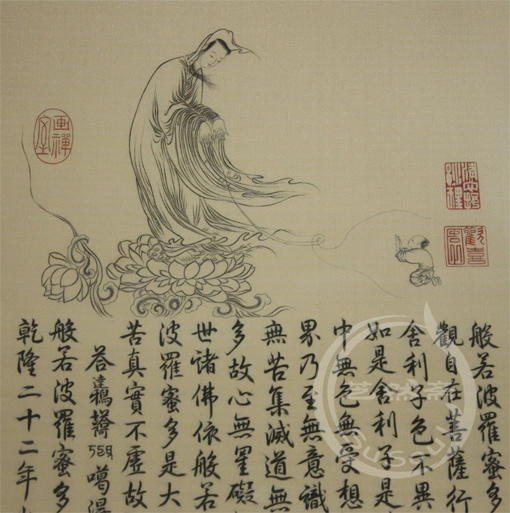 畫禪室
般若波羅蜜多
觀自在菩薩行
舍利子色不異
如是舍利子是
中無色無受想
界乃至無意識
無苦集滅道無
多故心無罣礙
世諸佛依般若
波羅蜜多是大
苦真實不虛故
般若波羅蜜多
乾隆二十二年